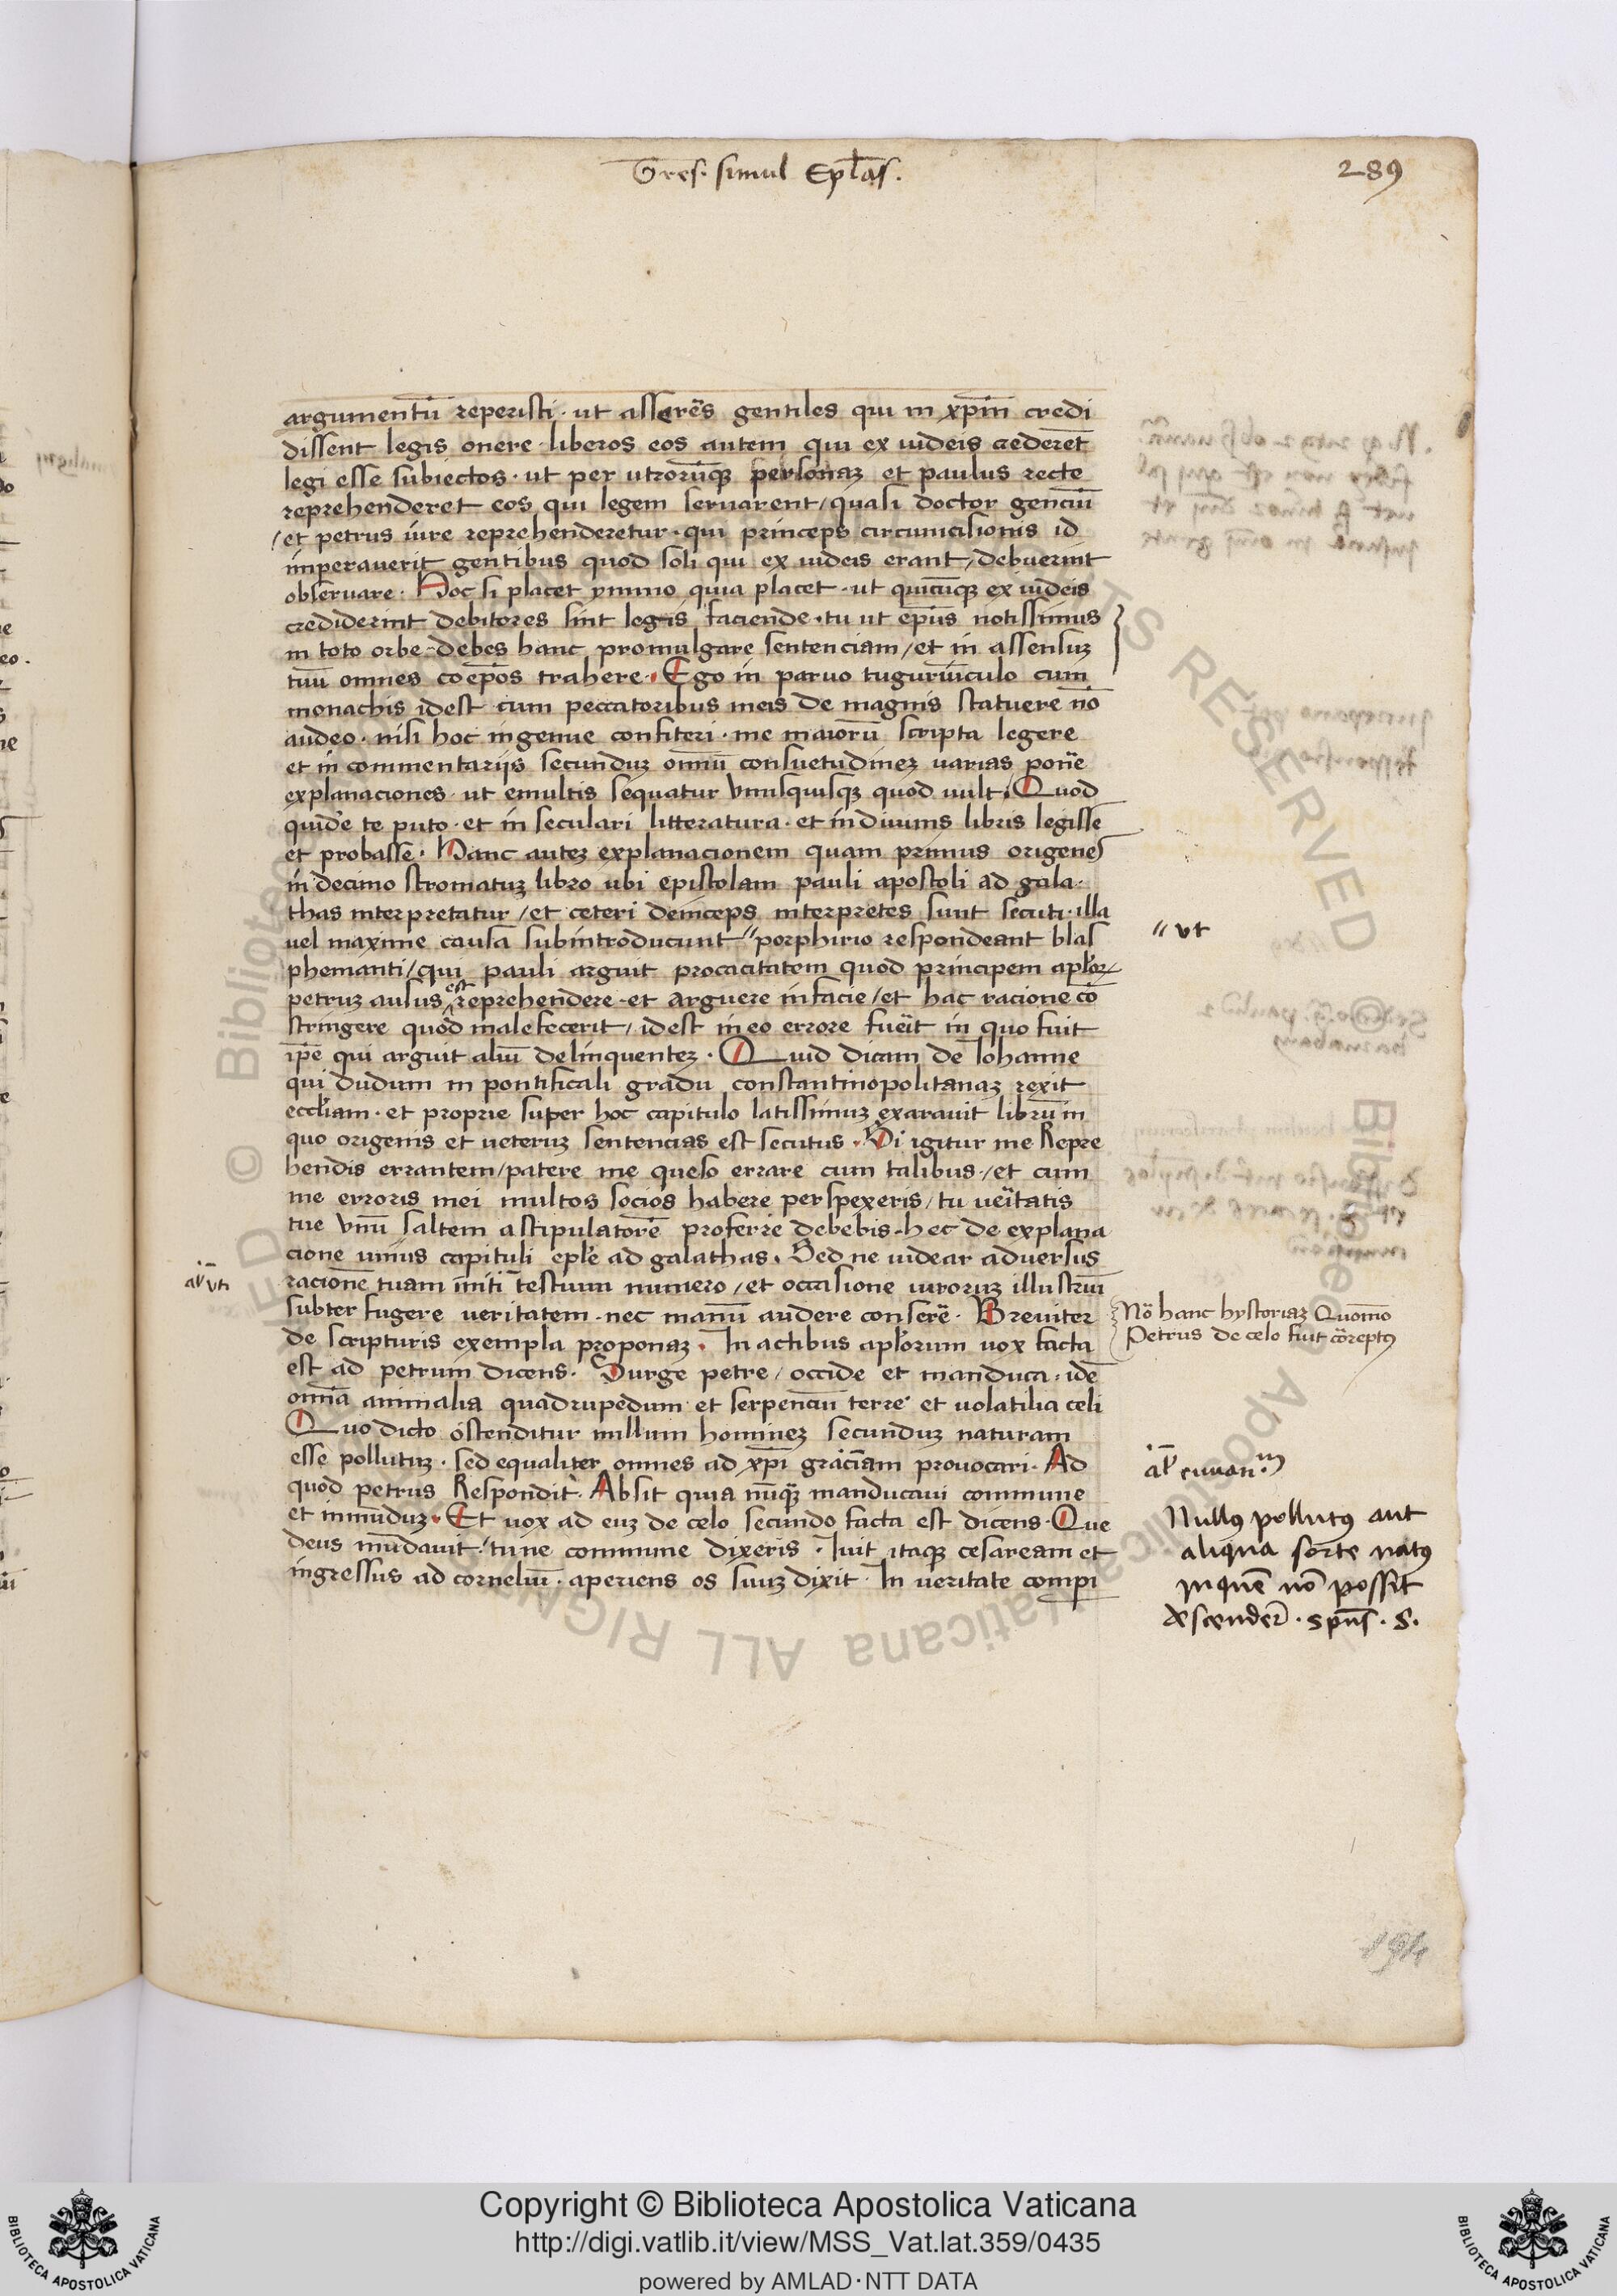 Tres. simul Ep̄las.
289
argumentū reperisti · ut asserēs gentiles qui in xp̄m̄ credi
dissent legis onere liberos eos autem qui ex iudeis crederēt
legi esse subiectos · ut per utrorūqꝫ personaꝫ et paulus recte
reprehenderet eos qui legem seruarent / quasi doctor genciū
/ et petrus iure reprehenderetur · qui princeps circumcisionis id
imperauerit gentibus quod soli qui ex iudeis erant / debuerint
obseruare · Hoc si placet ymmo quia placet · ut quicūqꝫ ex iudeis
crediderint debitores sint legis faciende · tu ut ep̄us notissimus
in toto orbe debes hanc promulgare sentenciam / et in assensuꝫ
tuū omnes coep̄os trahere · Ego in paruo tuguriūculo cum
monachis idest cum peccatoribus meis de magnis statuere nō
audeo · nisi hoc ingenue confiteri · me maiorū scripta legere
et in commentarijs secunduꝫ omniū consuetudineꝫ uarias ponē
explanaciones · ut emultis sequatur vnusquisqꝫ quod uult / Quod
quidē te puto · et in seculari litteratura · et in diuinis libris legisse
et probasse · Hanc auteꝫ explanacionem quam primus origenes
in decimo stromatuꝫ libro ubi epistolam pauli apostoli ad gala ·
thas interpretatur / et ceteri deinceps interpretes sunt secuti · illa
uel maxime causa subintroducunt " porphirio respondeant blas
" vt
phemanti / qui pauli arguit procacitatem quod principem apl̄oꝝ
petruꝫ ausus est reprehendere · et arguere in facie / et hac racione cō
stringere quod male fecerit / idest in eo errore fuēit in quo fuit
ip̄e qui arguit aliū delinquenteꝫ · Quid dicam de Iohanne
qui dudum in pontificali gradu constantinopolitanaꝫ rexit
eccl̄iam · et proprie super hoc capitulo latissimuꝫ exarauit librum in
quo origenis et ueteruꝫ sentencias est secutus · Si igitur me Repre
hendis errantem / patere me queso errare cum talibus · / et cum
me erroris mei multos socios habere perspexeris / tu uēitatis
tue vnū saltem astipulatorē proferre debebis · hec de explana
cione unius capituli epl̄e ad galathas · Sed ne uidear aduersus
al' vti
racionē tuam īniti testium numero / et occasione uiroruꝫ illustriū
subter fugere ueritatem · nec manū audere conserē · Breuiter
Nō hanc hystoriaꝫ Quomō
de scripturis exempla proponaꝫ · In actibus apl̄orum uox facta
Petrus de celo fuit cōreptꝰ
est ad petrum dicens · Surge petre / occide et manduca · idē
omīa animalia quadrupedum et serpenciū terre et uolatilia celi
Quo dicto ostenditur nullum homineꝫ secunduꝫ naturam
esse pollutuꝫ · sed equaliter omnes ad xp̄i graciam prouocari · Ad
quod petrus Respondit · Absit quia nūqꝫ manducaui commune
et inmūduꝫ · Et uox ad euꝫ de celo secundo facta est dicens · Que
deus mūdauit · / tu ne commune dixeris · Iuit itaqꝫ cesaream et
ingressus ad corneliū · aperiens os suuꝫ dixit · In ueritate compi
Nullꝰ pollutꝰ aut
aliqua sorte natꝰ
in quē nō possit
descenderē · sp̄us · S.
194
Copyright © Biblioteca Apostolica Vaticana
http://digi.vatlib.it/view/MSS_Vat.lat.359/0435
powered by AMLAD·NTT DATA
BIBLIOTECA APOSTOLICA VATICANA
BIBLIOTECA APOSTOLICA VATICANA
© Biblioteca Apostolica Vaticana ALL RIGHTS RESERVED